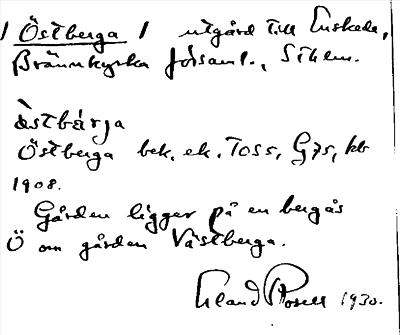 / Östberga / utgård till Enskede,
Brännkyrka församl., Sthlm.
östbárja
Östberga bek. ek. Toss, G75, kb
1908.
Gården ligger på en bergås
Ö om gården Västberga.
Erland Rosell 1930.